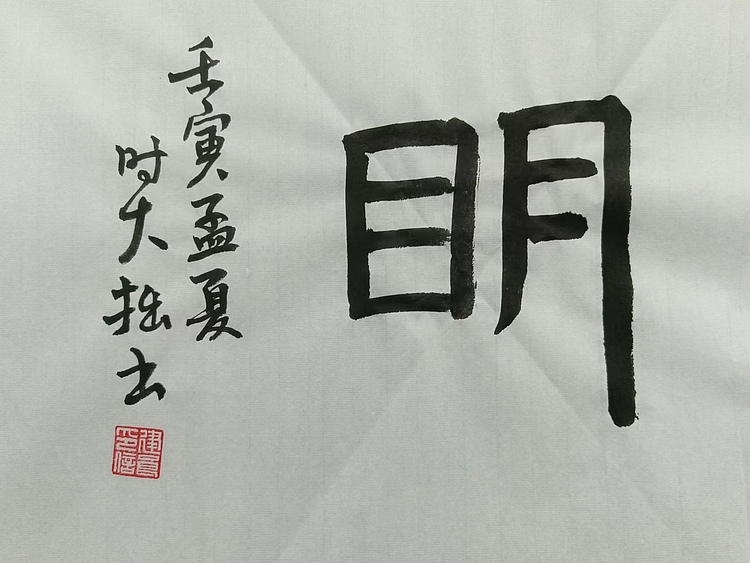 眀
壬寅孟夏
时大拙书